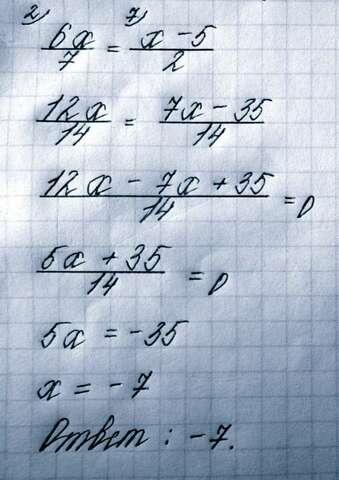 2) 7)
6x/7 = x - 5/2
12x/14 = 7x - 35/14
12x - 7x + 35/14 = 0
5x + 35/14 = 0
5x = -35
x = -7
Ответ: -7.